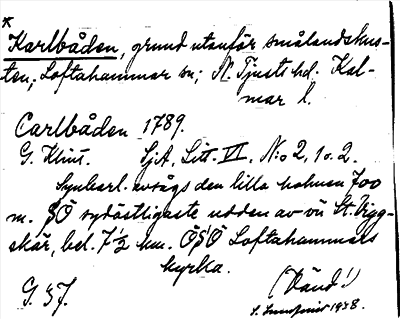 *
Karlbåden, grund utanför smålandskus-
ten; Loftahammar sn; N. Tjusts hd. Kal-
mar l.
Carlbåden 1789.
G. Klint. SjA, Litt. VI. N:o 2, 1 o. 2.
Synbarl. avsågs den lilla holmen 700
m. SÖ sydöstligaste udden av ön St. Vigg-
skär, bel. 7 1/2 km. ÖSÖ Loftahammars
kyrka.
G. 37. (Vänd!)
1938.